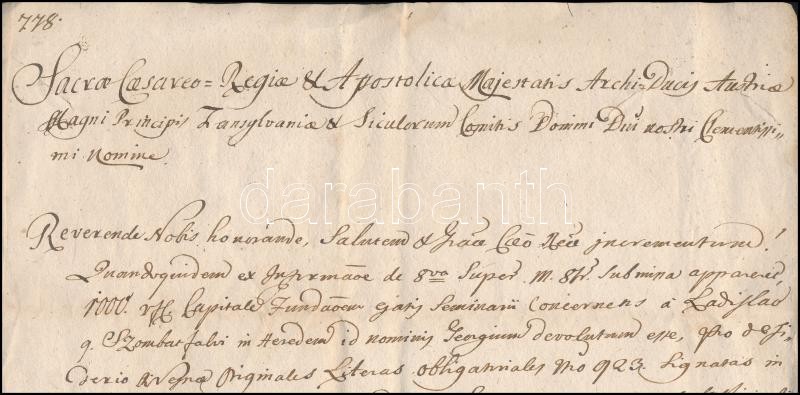 778.
Sacræ Cæsareo=Regiæ & Apostolicæ Majestatis Archi=Ducis Austriæ
Magni Principis Transylvaniæ & Siculorum Comitis Domini Dni nostri Clementissi=
mi Nomine.
darabanth
Reverende Nobis honorande, Salutem & Incrementum!
Quandoquidem ex de 8va Super. submissa appareret,
1000. Capitale ejatis Seminarii Concernens à Ladislao
q. Szombatfalvi in Hæredem id nominis Georgium devolutum esse, pro desi=
derio Originales Literas obligatoriales No 923. signatas in